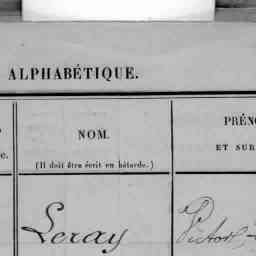 ALPHABÉTIQUE.
NOM.
PRÉN
ET SUR
(Il doit être écrit en bâtarde.)
e.
Leray Victor